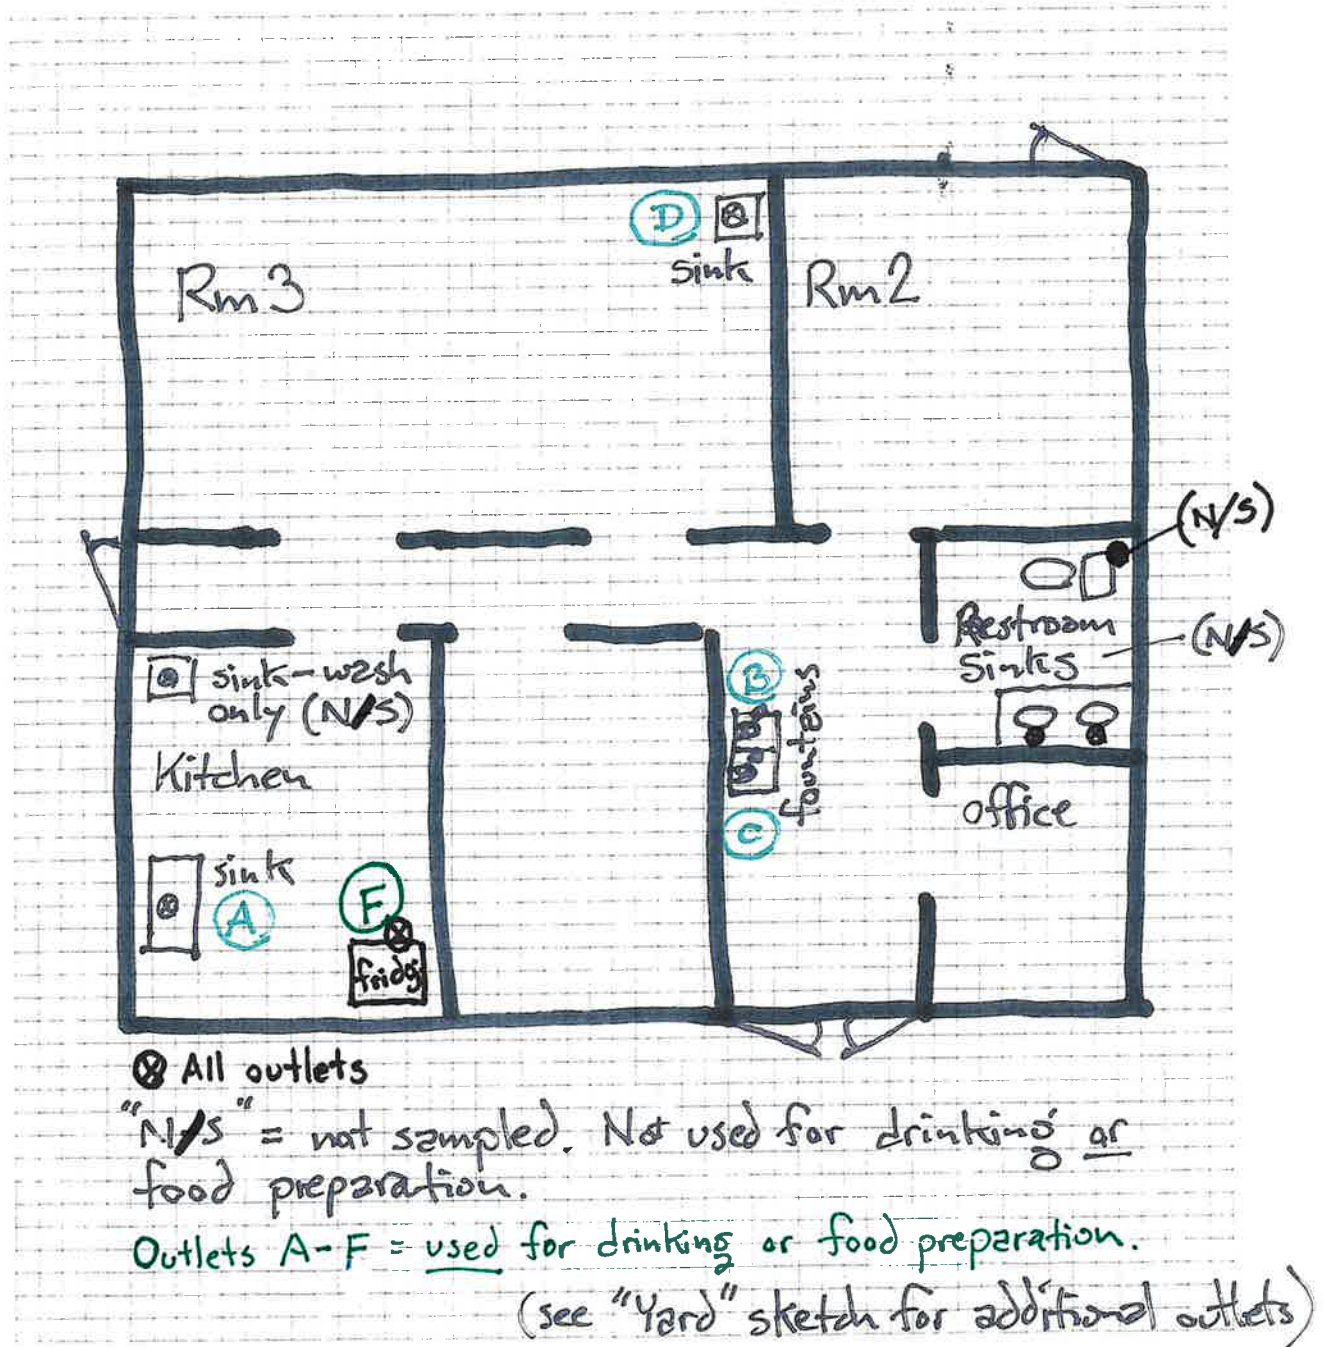 D
sink
Rm 3
Rm 2
(N/S)
Restroom
Sinks
(N/S)
sink-wash
only (N/S)
B
fountains
C
Kitchen
office
sink
A
F
fridg
⊗ All outlets
"N/S" = not sampled. Not used for drinking or
food preparation.
Outlets A-F = used for drinking or food preparation.
(see "Yard" sketch for additional outlets)